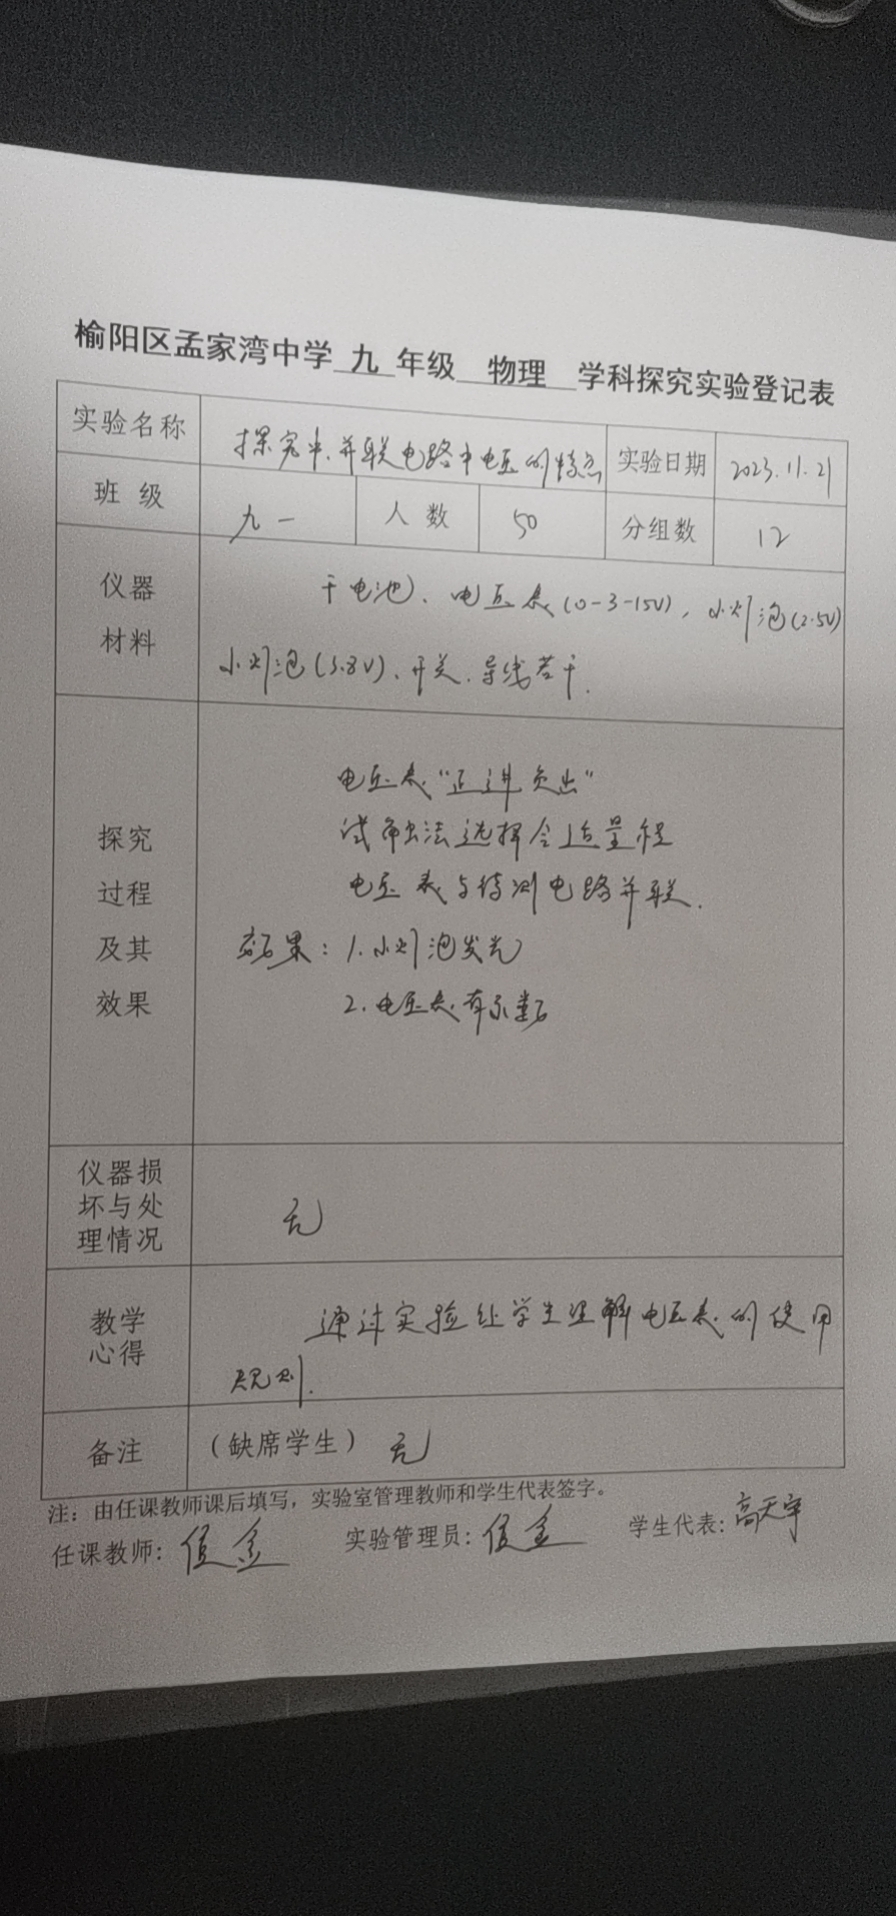 榆阳区孟家湾中学 九 年级 物理 学科探究实验登记表
实验名称 探究串、并联电路中电压的特点 实验日期 2023.11.21
班 级 九一 人 数 50 分组数 12
仪器 干电池、电压表(0-3-15V), 小灯泡(2.5V)
材料 小灯泡(3.8V)、开关、导线若干.
电压表"正进负出"
探究 试触法选择合适量程
过程 电压表与待测电路并联.
及其 效果: 1.小灯泡发光
效果 2.电压表有示数
仪器损
坏与处 无
理情况
教学 通过实验让学生理解电压表的使用
心得 规则.
备注 (缺席学生) 无
注: 由任课教师课后填写, 实验室管理教师和学生代表签字。
任课教师: 实验管理员: 学生代表: 高天宇